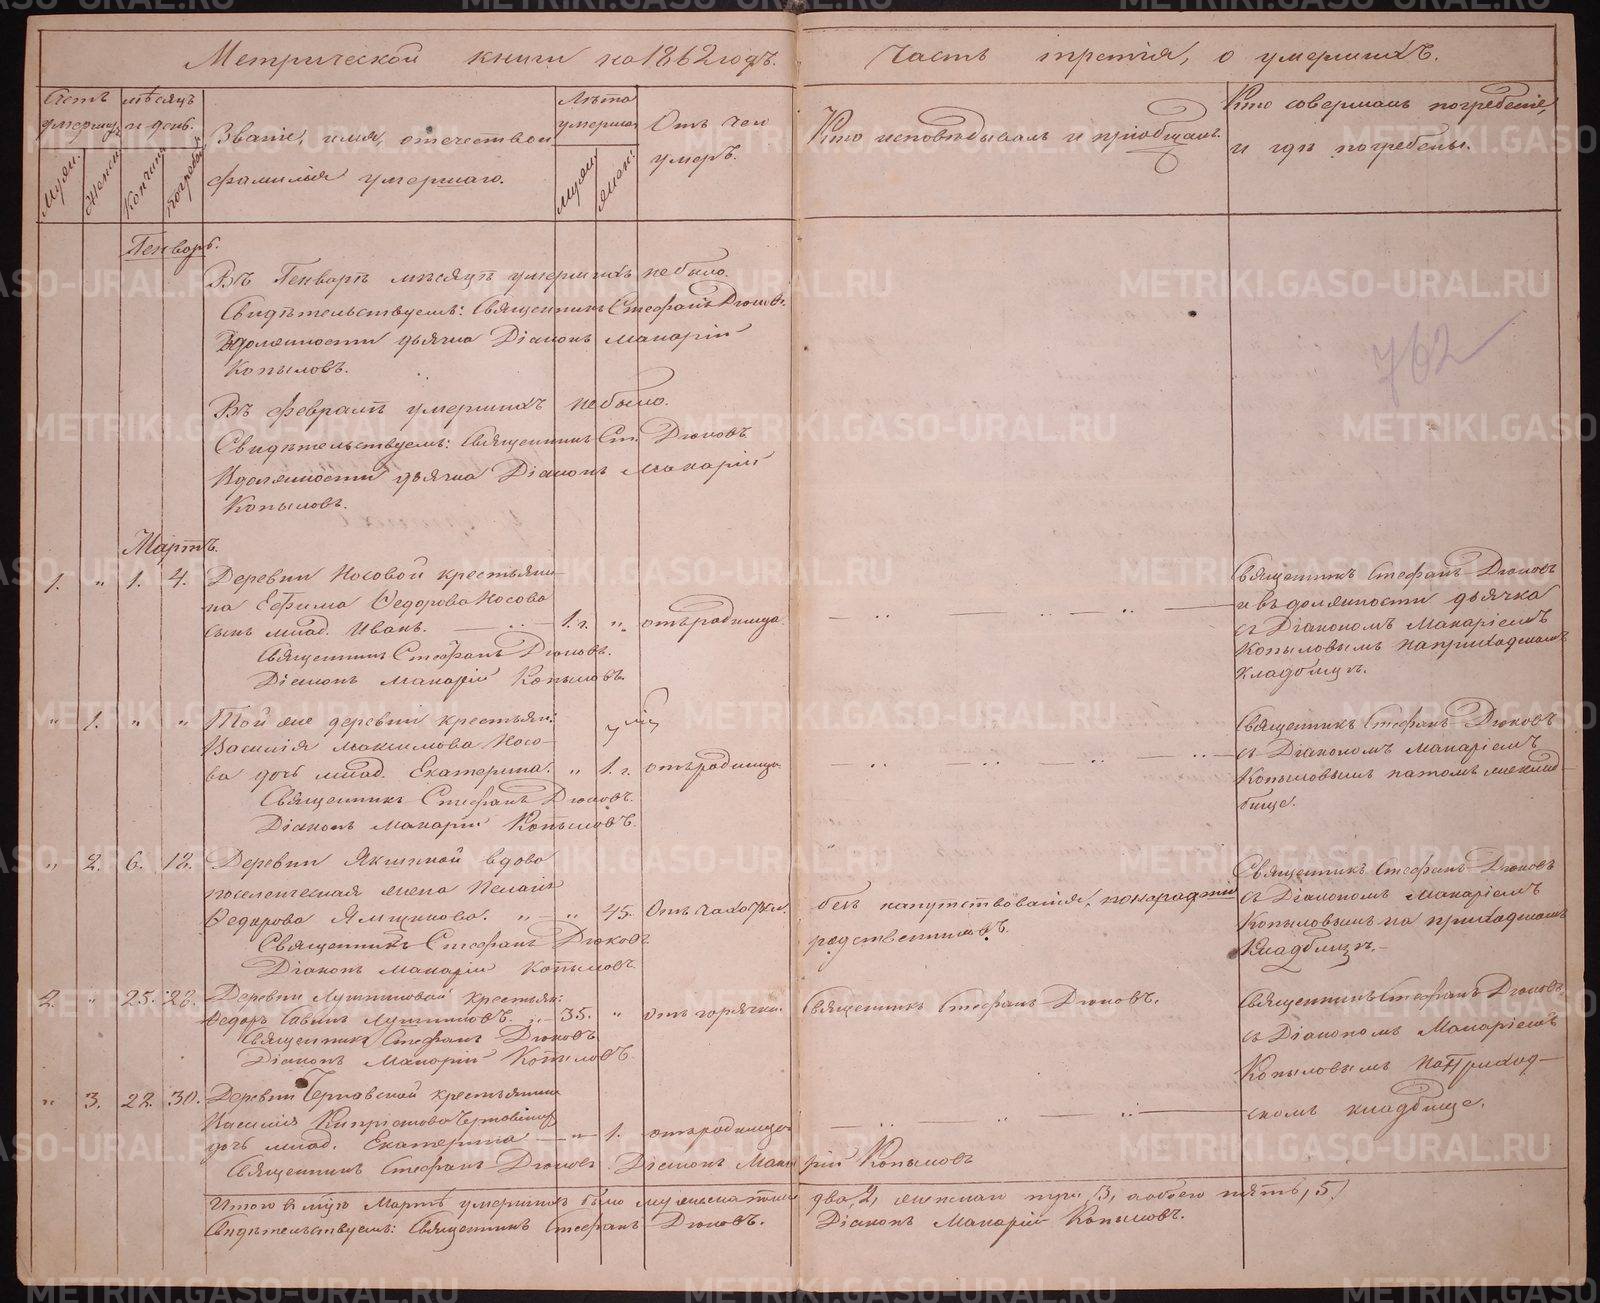 Метрической книги на 1862 годъ.
Часть третія, о умершихъ.
Счетъ умершихъ
Муж.
Женск.
мѣсяцъ и день.
Кончины
Погребенія
Званіе, имя, отечество и
фамилія умершаго.
Лѣта
умершаго
Мужс.
Женс.
Отъ чего
умеръ.
Кто исповѣдывалъ и пріобщалъ.
Кто совершалъ погребеніе,
и гдѣ погребены.
Генварь.
Въ Генварѣ мѣсяцѣ умершихъ не было.
Свидѣтельствуемъ: Священникъ Стефанъ Дюковъ.
В должности дьячка Діаконъ Макарій
Копыловъ.
762
Въ февралѣ умершихъ небыло.
Свидѣтельствуемъ: Священникъ Ст. Дюковъ
В должности дьячка Діаконъ Макарій
Копыловъ.
Мартъ.
1. " 1. 4. Деревни Носовой крестьяни-
на Ефима Ѳедорова Носова
сынъ млад. Иванъ. 1. г. " отъ родимца
Священникъ Стефанъ Дюковъ.
Діаконъ Макарій Копыловъ.
Священникъ Стефанъ Дюковъ
и въ должности дьячка
съ Діакономъ Макаріемъ
Копыловымъ на приходскомъ
кладбищѣ.
" 1. " " Той же деревни крестьян:
Василія Максимова Носо-
ва дочь млад. Екатерина. " 1. г. отъ родимца.
Священникъ Стефанъ Дюковъ.
Діаконъ Макарій Копыловъ.
Священникъ Стефанъ Дюковъ
съ Діакономъ Макаріемъ
Копыловымъ на томъ же клад-
бище.
" 2. 6. 12. Деревни Якшиной вдова
поселенческая жена Пелагія
Ѳедорова Ямщикова. " " 45. Отъ чахотки.
Священникъ Стефанъ Дюковъ.
Діаконъ Макарій Копыловъ.
безъ напутствованія, по нерадѣнію
родственниковъ.
Священникъ Стефанъ Дюковъ
съ Діакономъ Макаріемъ
Копыловымъ на приходскомъ
кладбищѣ.
2. " 25. 28. Деревни Лушниковой крестьян:
Ѳедоръ Савинъ Лушниковъ. 35. " отъ горячки.
Священникъ Стефанъ Дюковъ
Діаконъ Макарій Копыловъ.
Священникъ Стефанъ Дюковъ.
Священникъ Стефанъ Дюковъ
съ Діакономъ Макаріемъ
Копыловымъ на приход-
скомъ кладбище.
" 3. 28. 30. Деревни Черновской крестьянина
Василія Кипріянова
дочь млад. Екатерина " 1. отъ родимца
Священникъ Стефанъ Дюковъ. Діаконъ Макарій Копыловъ
Итого въ мцѣ Мартѣ умершихъ было мужеска пола два, 2, женска три, 3, а обоего пять, 5.
Свидѣтельствуемъ: Священникъ Стефанъ Дюковъ. Діаконъ Макарій Копыловъ.
METRIKI.GASO-URAL.RU